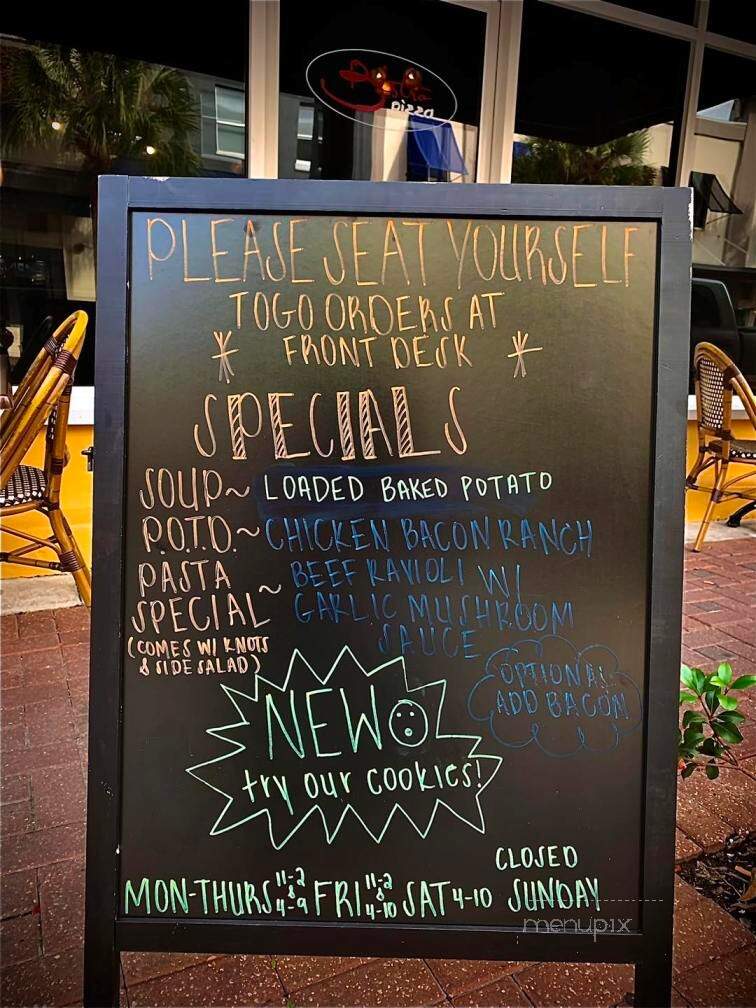 pizza
PLEASE SEAT YOURSELF
TOGO ORDERS AT
* FRONT DESK *
SPECIALS
SOUP~ LOADED BAKED POTATO
P.O.T.D.~ CHICKEN BACON RANCH
PASTA SPECIAL~ BEEF RAVIOLI W/
GARLIC MUSHROOM
SAUCE
(COMES W/ KNOTS
& SIDE SALAD)
OPTIONAL
ADD BACON
NEW
try our cookies!
CLOSED
MON-THURS 11-2 & 4-9 FRI 11-2 & 4-10 SAT 4-10 SUNDAY
menupix